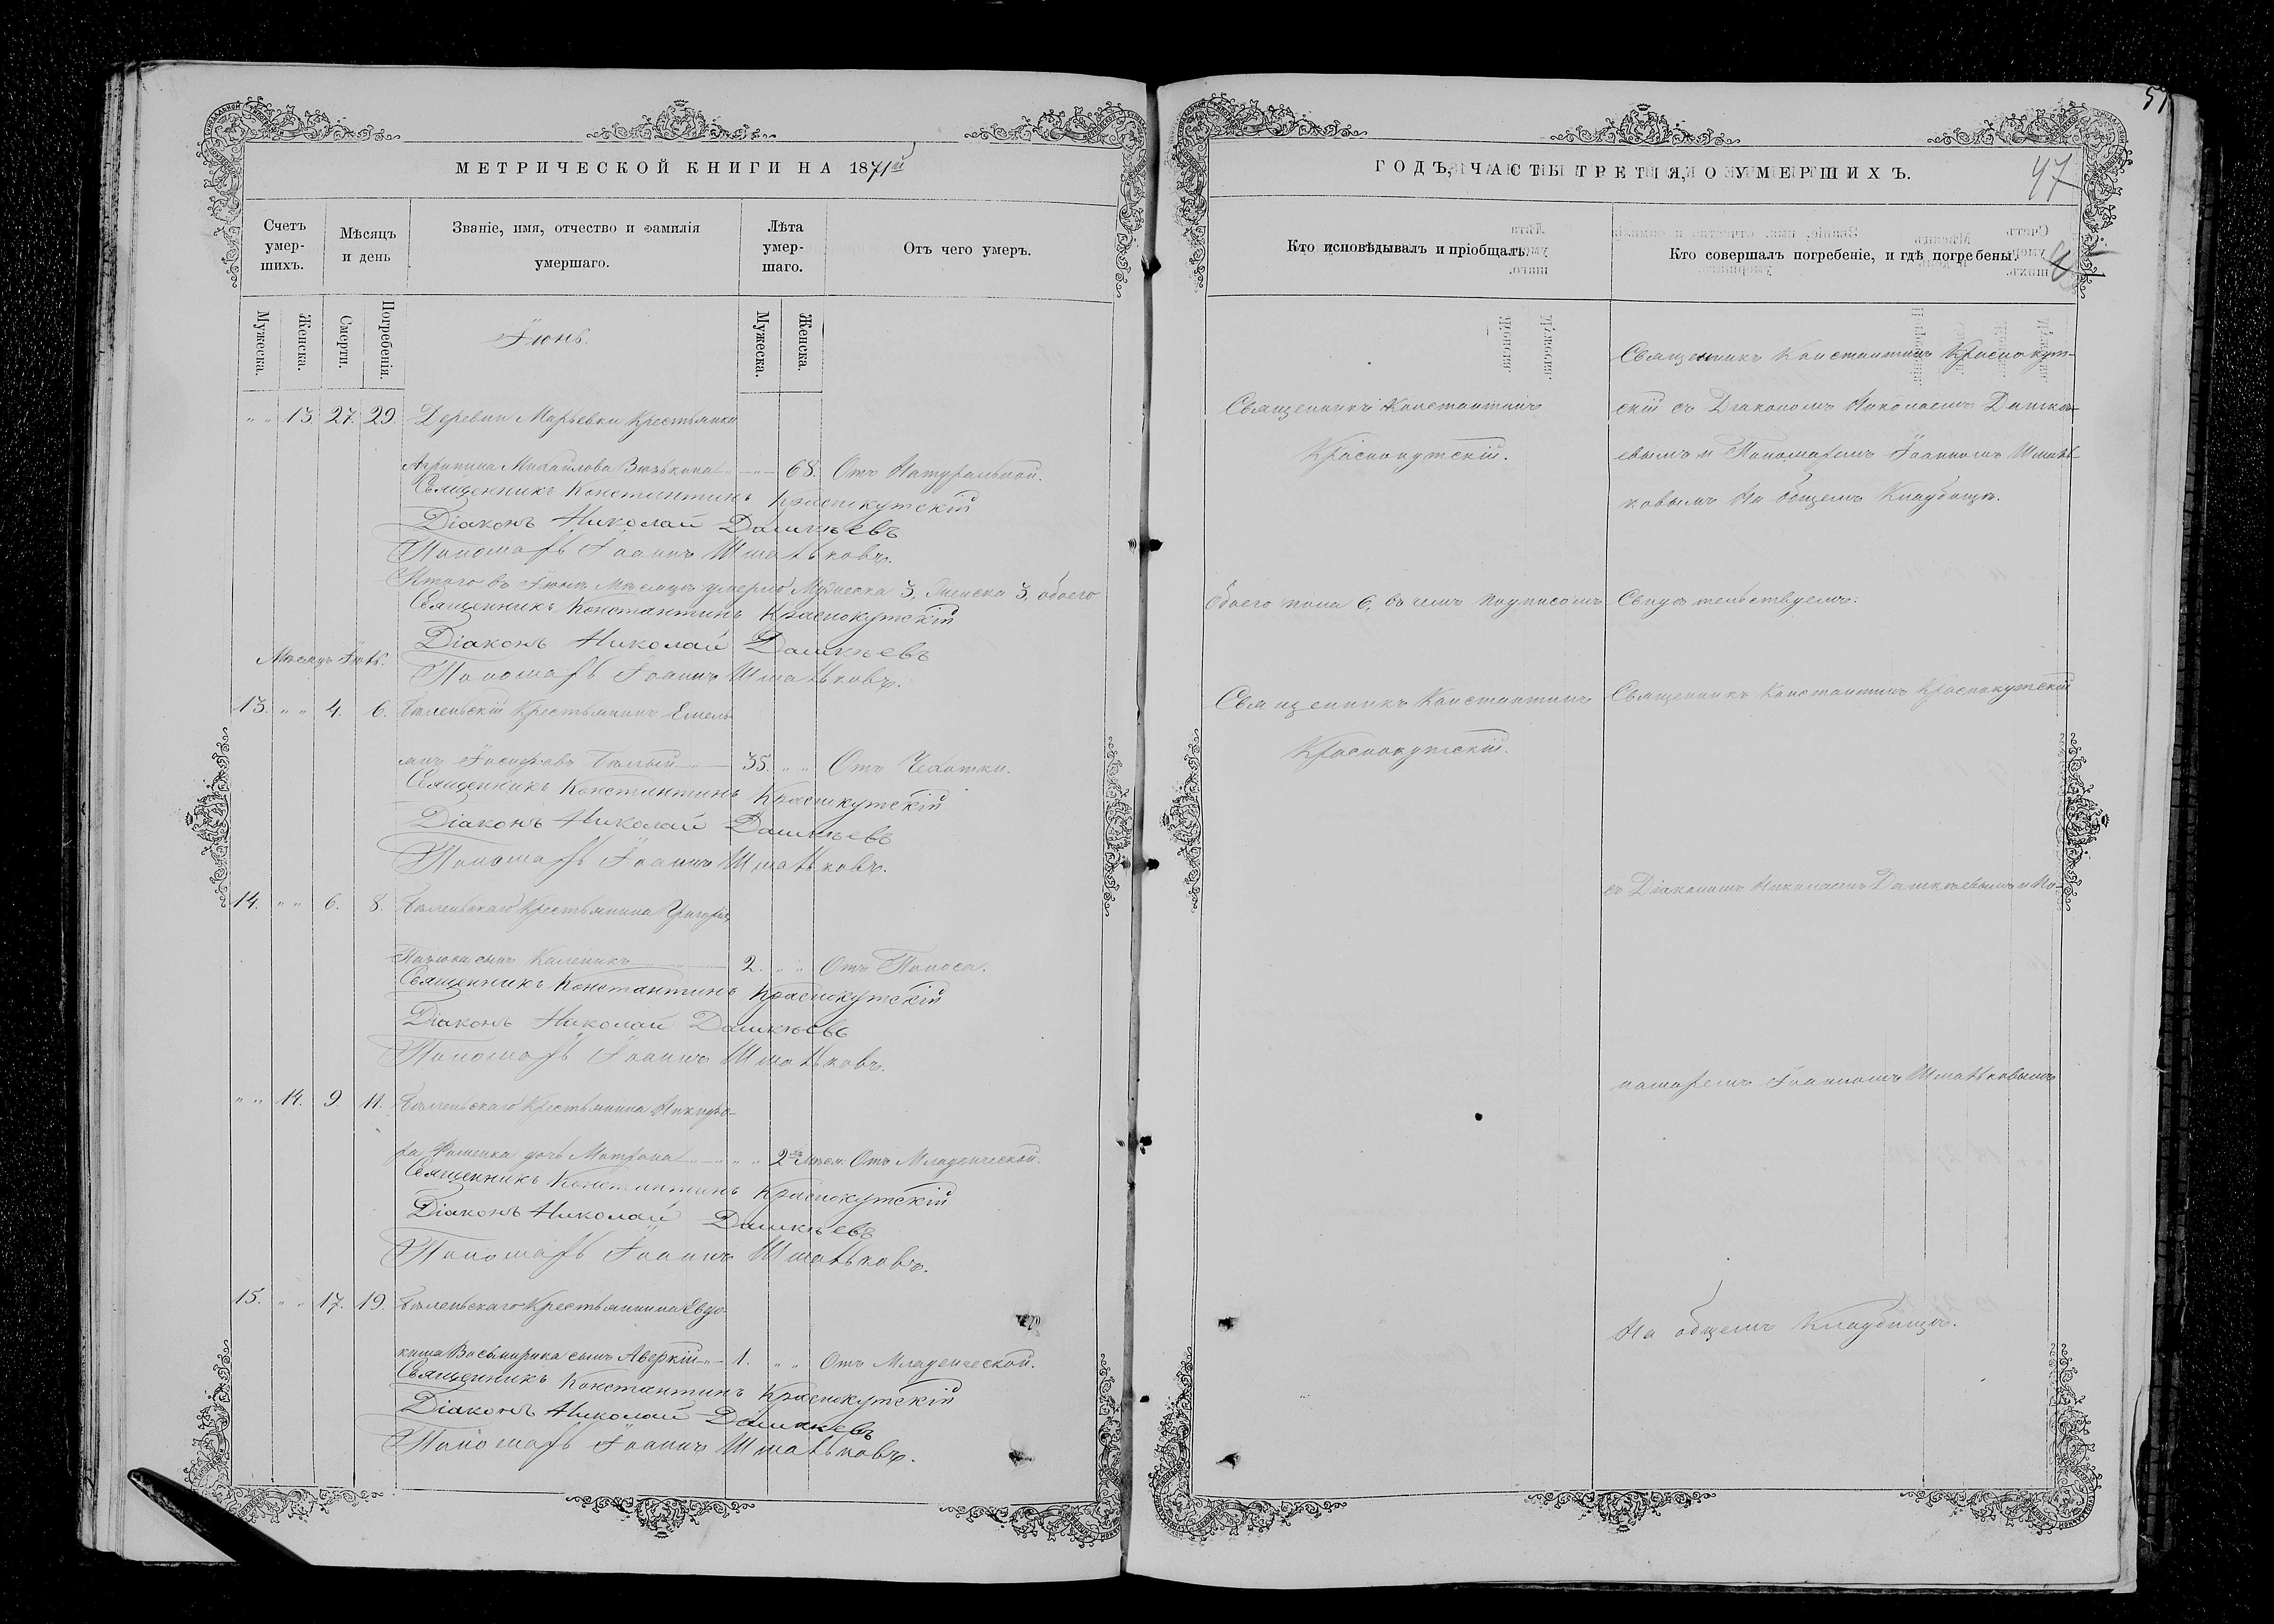 МЕТРИЧЕСКОЙ КНИГИ НА 1871й
Счетъ умер-шихъ.
Мѣсяцъ и день
Званіе, имя, отчество и фамилія умершаго.
Лѣта умер-шаго.
Отъ чего умеръ.
Мужеска.
Женска.
Смерти.
Погребенія.
Мужеска.
Женска.
Іюнь.
" " 13. 27. 29. Деревни Марьевки Крестьянка
Агрипина Михайлова 68. Отъ Натуральной.
Священникъ Константинъ Краснокутскій
Діаконъ Николай Дашкѣевъ
Пономарь Іоаннъ Шматьковъ.
Итого въ Іюнѣ мѣсяцѣ умерло Мужеска 3, Женска 3, обоего
Священникъ Константинъ Краснокутскій
Діаконъ Николай Дашкѣевъ
Мѣсяцъ
Пономарь Іоаннъ Шматьковъ.
13. " " 4. 6. Крестьянинъ Емель-
янъ Іосифовъ Бѣлый 35. " " Отъ Чахотки.
Священникъ Константинъ Краснокутскій
Діаконъ Николай Дашкѣевъ
Пономарь Іоаннъ Шматьковъ.
14. " " 6. 8. Крестьянина Григорія
сынъ Каленикъ 2. " " Отъ Поноса.
Священникъ Константинъ Краснокутскій
Діаконъ Николай Дашкѣевъ
Пономарь Іоаннъ Шматьковъ.
" " 14. 9. 11. Крестьянина Никифо-
ра Фоменка дочь Матрона " " 2хъ Мѣсяц. Отъ Младенческой.
Священникъ Константинъ Краснокутскій
Діаконъ Николай Дашкѣевъ
Пономарь Іоаннъ Шматьковъ.
15. " " 17. 19. Крестьянина Евдо-
кима сынъ Аверкій 1. " " Отъ Младенческой.
Священникъ Константинъ Краснокутскій
Діаконъ Николай Дашкѣевъ
Пономарь Іоаннъ Шматьковъ.
57
ГОДЪ, ЧАСТЬ ТРЕТІЯ, О УМЕРШИХЪ.
47
Кто исповѣдывалъ и пріобщалъ.
Кто совершалъ погребеніе, и гдѣ погребены.
Священникъ Константинъ
Краснокутскій.
Священникъ Константинъ Краснокут-
скій съ Діакономъ Николаемъ Дашкѣ-
евымъ и Пономаремъ Іоанномъ Шмать-
ковымъ На общемъ Кладбищѣ.
Обоего пола 6, въ чемъ подписомъ Свидѣтельствуемъ:
Священникъ Константинъ
Краснокутскій.
Священникъ Константинъ Краснокутскій
съ Діакономъ Николаемъ Дашкѣевымъ и По-
номаремъ Іоанномъ Шматьковымъ
На общемъ Кладбищѣ.